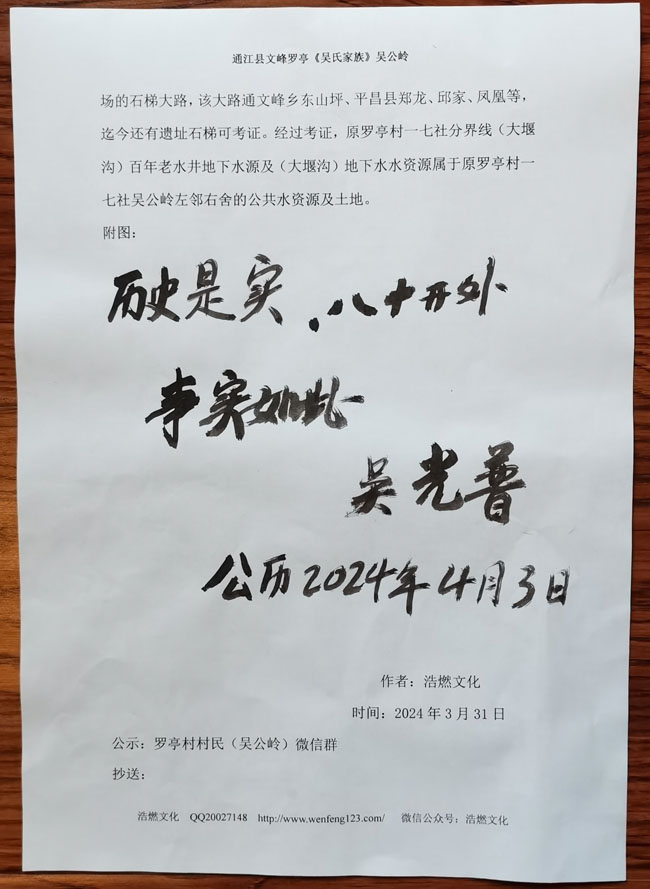 通江县文峰罗亭《吴氏家族》吴公岭
场的石梯大路，该大路通文峰乡东山坪、平昌县郑龙、邱家、凤凰等，
迄今还有遗址石梯可考证。经过考证，原罗亭村一七社分界线（大堰
沟）百年老水井地下水源及（大堰沟）地下水水资源属于原罗亭村一
七社吴公岭左邻右舍的公共水资源及土地。
附图：
历史是实，八十开外
事实如此
吴光普
公历2024年4月3日
作者：浩燃文化
时间：2024年3月31日
公示：罗亭村村民（吴公岭）微信群
抄送：
浩燃文化 QQ20027148 http://www.wenfeng123.com/ 微信公众号：浩燃文化